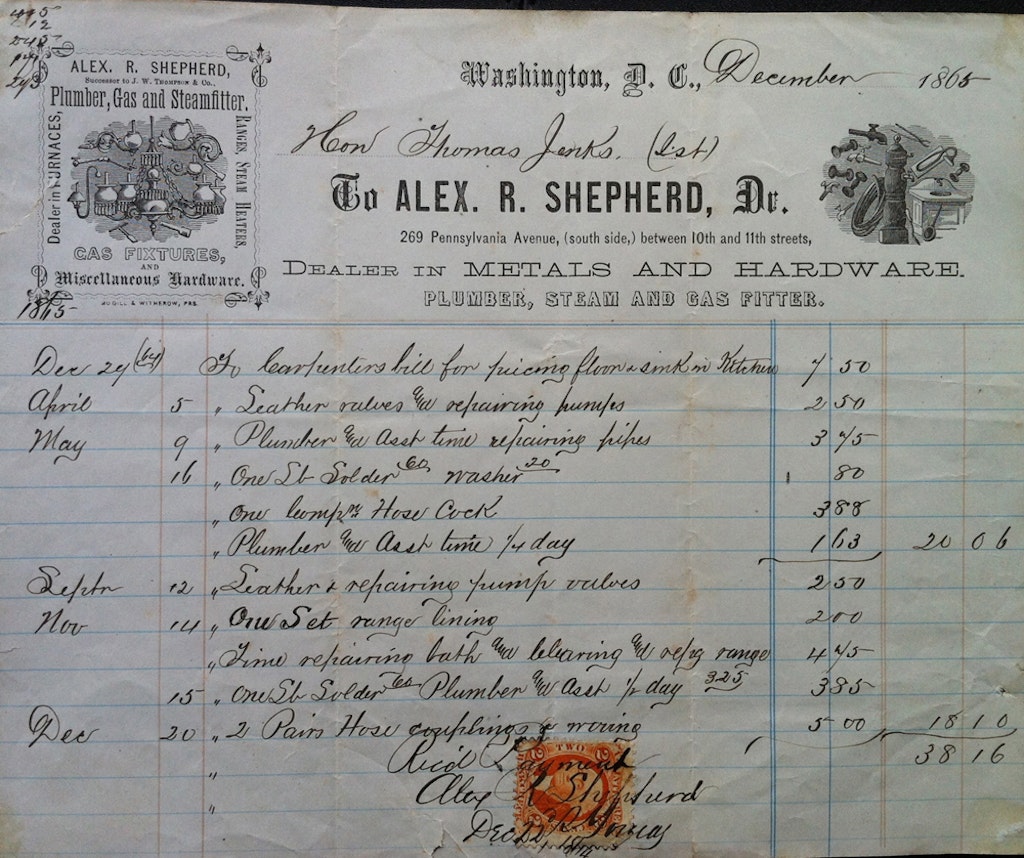 495
12
245
ALEX. R. SHEPHERD,
Successor to J. W. THOMPSON & Co.,
Plumber, Gas and Steamfitter.
Dealer in FURNACES,
RANGES, STEAM HEATERS,
GAS FIXTURES,
AND
Miscellaneous Hardware.
McGILL & WITHEROW, PRS.
Washington, D. C., December 1865
Hon Thomas Jenks. (Est)
To ALEX. R. SHEPHERD, Dr.
269 Pennsylvania Avenue, (south side,) between 10th and 11th streets,
DEALER IN METALS AND HARDWARE.
PLUMBER, STEAM AND GAS FITTER.
1865
Dec 29 (64) To Carpenters bill for piecing floor & sink in Kitchen 7 50
April 5 " Leather valves and repairing pumps 2 50
May 9 " Plumber and Asst time repairing pipes 3 75
16 " One Lb Solder 60 washer 20 80
" One Hose Cock 3 88
" Plumber and Asst time 1/4 day 1 63 20 06
Septr 12 " Leather & repairing pump valves 2 50
Nov 14 " One Set range lining 2 00
" Time repairing bath and clearing and repg range 4 75
15 " One Lb Solder 60 Plumber and Asst 1/2 day 3.25 3 85
Dec 20 " 2 Pairs Hose couplings & wiring 5 00 18 10
" Rec'd Payment 38 16
" Alex R Shepherd
Dec 22
TWO